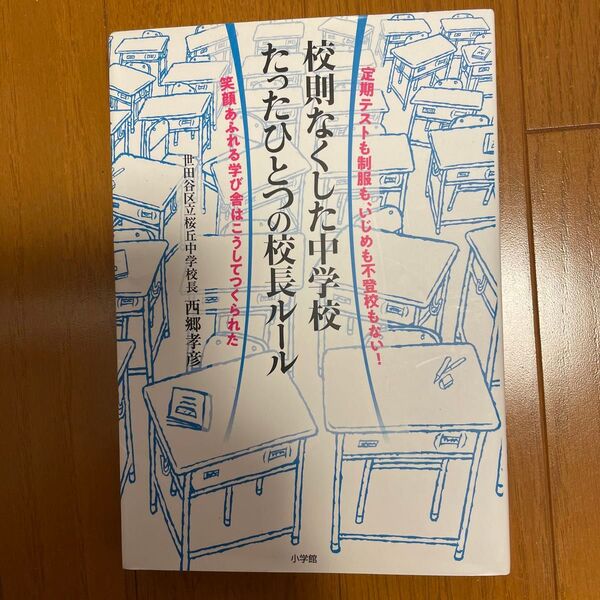 定期テストも制服も、いじめも不登校もない!
校則なくした中学校
たったひとつの校長ルール
笑顔あふれる学び舎はこうしてつくられた
世田谷区立桜丘中学校長 西郷孝彦
小学館